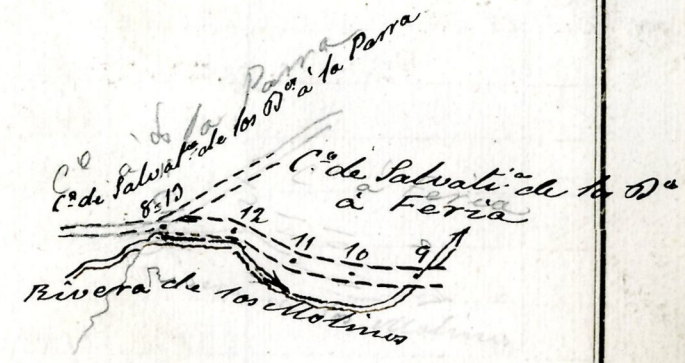 C.º de Salvat.ª de los B.os à la Parra
C.º de Salvati.ª de los B.os
à Feria
8=13
12
11
10
9
Rivera de los Molinos